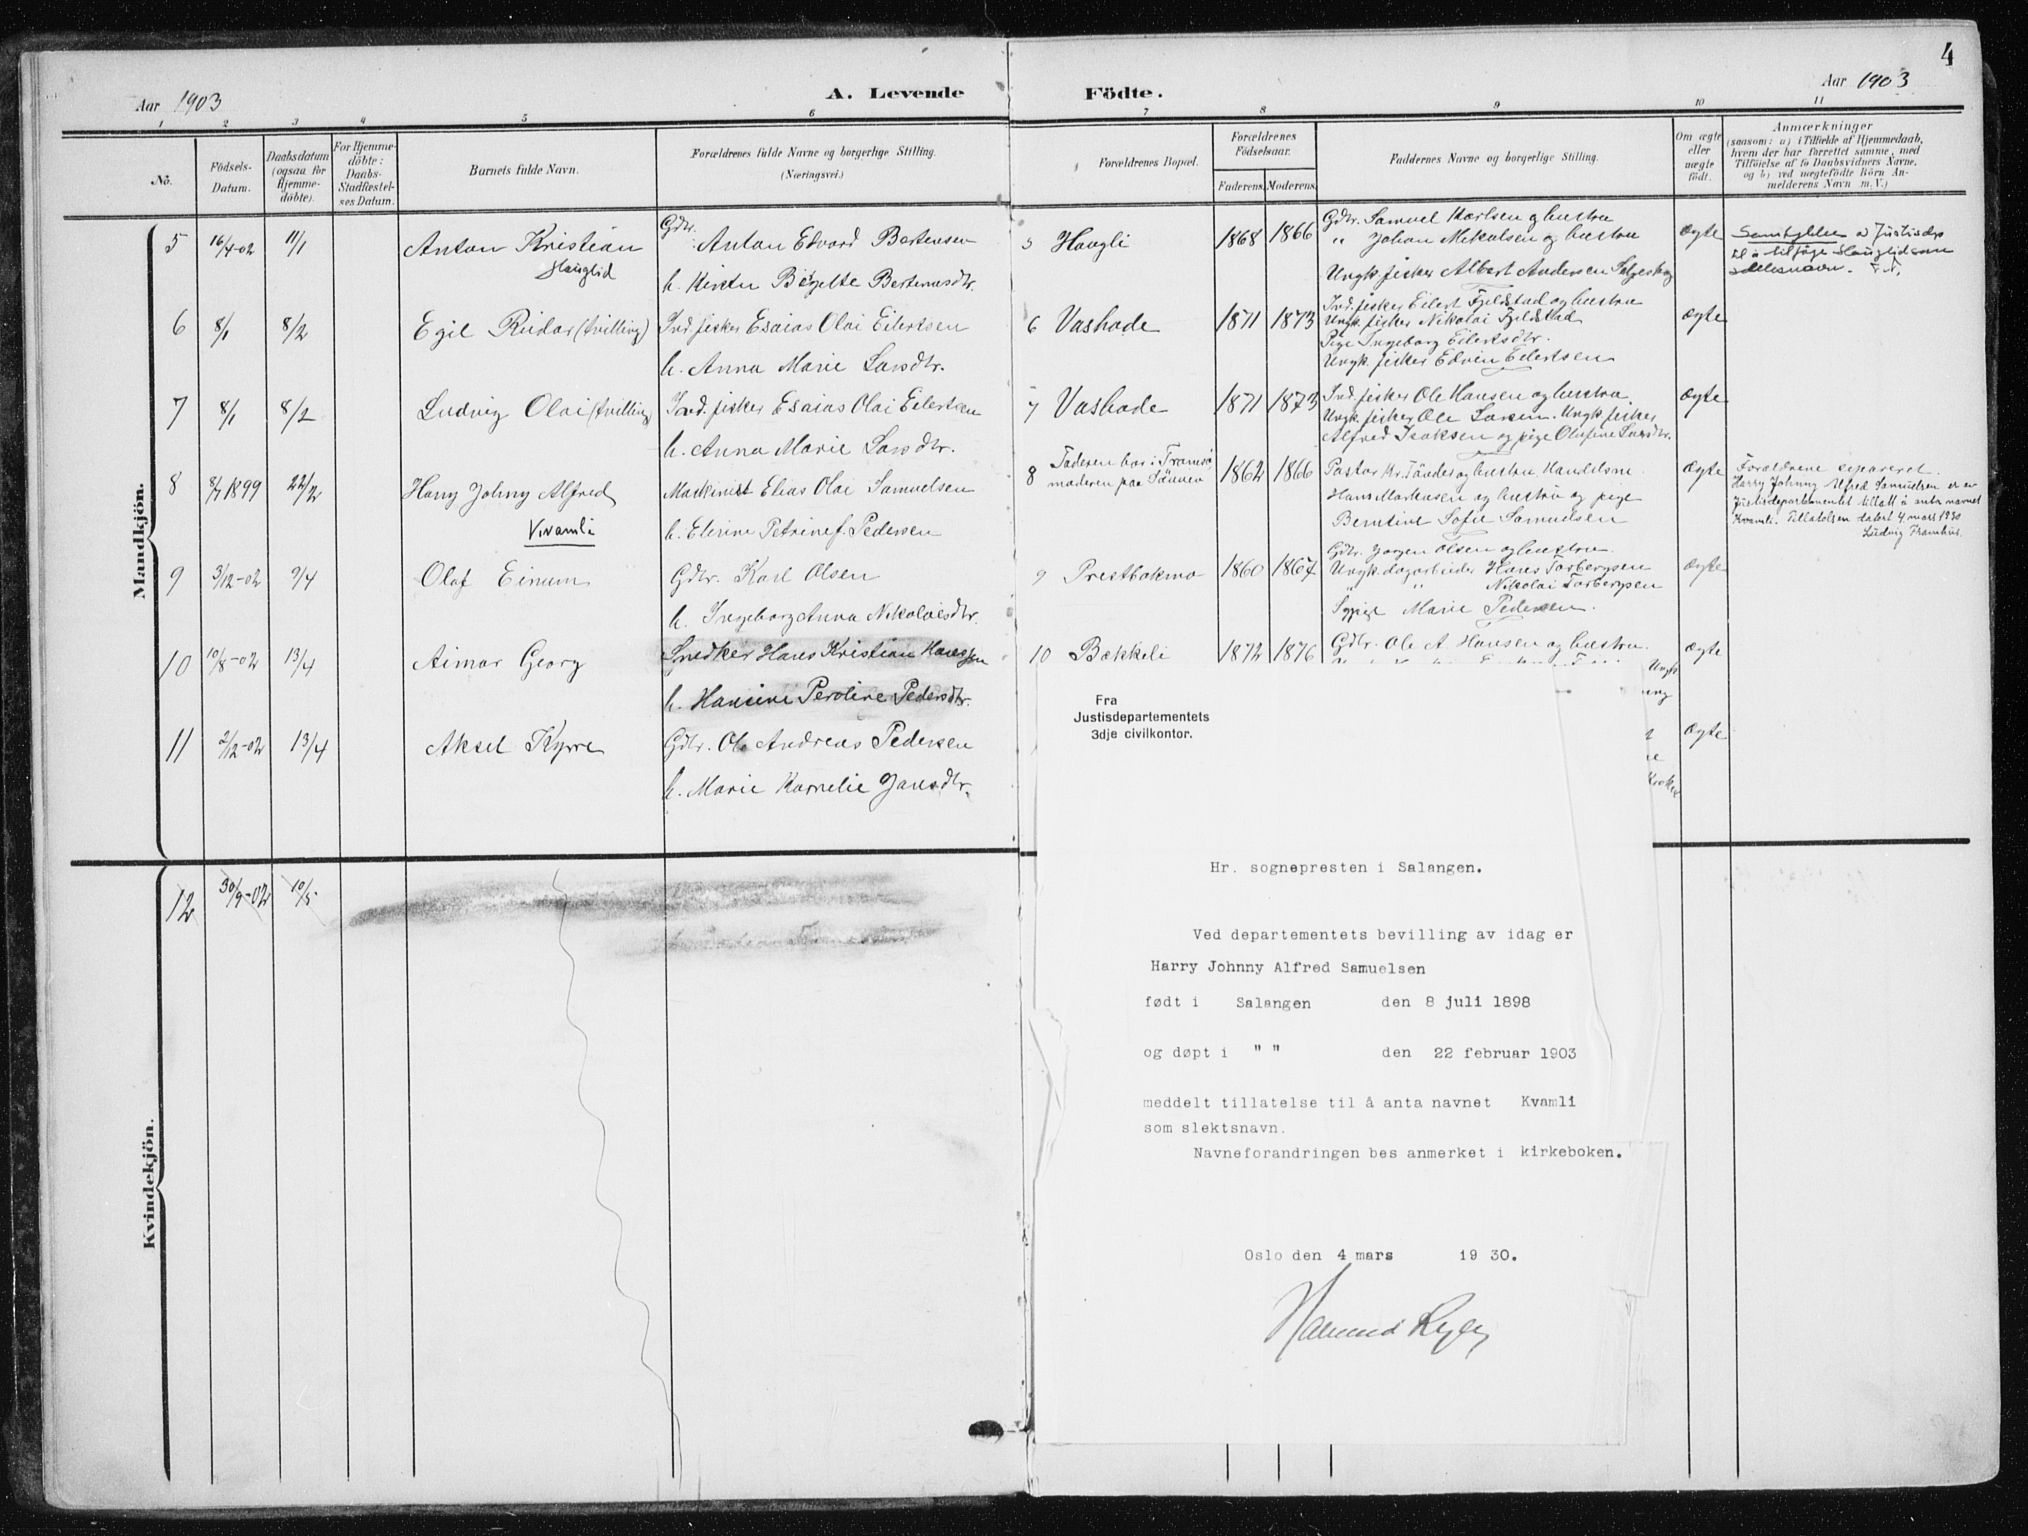 4
Aar 1903
A. Levende Födte.
Aar 1903
1 2 3 4 5 6 7 8 9 10 11
No.
Födsels-Datum.
Daabsdatum (ogsaa for Hjemme-döbte).
For Hjemme-döbte: Daabs-Stadfæstel-ses Datum.
Barnets fulde Navn.
Forældrenes fulde Navne og borgerlige Stilling.
(Næringsvei.)
Forældrenes Bopæl.
Forældrenes Födselsaar.
Faderens. Moderens.
Faddernes Navne og borgerlige Stilling.
Om ægte eller uægte födt.
Anmærkninger
(saasom: a) i Tilfælde af Hjemmedaab,
hvem der har forrettet samme, med
Tilföielse af to Daabsvidners Navne,
og b) ved uægtefödte Börn An-
melderens Navn m. V.)
Mandkjön.
5 16/4-02 11/1 Anton Kristian
Hauglid
Gdbr. Anton Edvard Bertensen
h. Kirsten Birgitte Berteusdtr.
5 Haugli 1868 1866
Gdbr. Samuel Karlsen og hustru
" Johan Mikalsen og hustru
Ungk. fisker Albert Andersen
ægte
Samtykke a Justisdep
til å tilföye Hauglid som
slektsnavn.
6 8/1 8/2 Egil Reidar (tvilling)
Ind. fisker Esaias Olai Eilertsen
h. Anna Marie Larsdtr.
6 Vashode 1871 1873
Ind. fisker Eilert Fjeldstad og hustru
Ungk. fisker Nikolai Fjeldstad
Pige Ingeborg Eilertsdtr.
Ungk. fisker Edvin Eilertsen
ægte
7 8/1 8/2 Ludvig Olai (tvilling)
Ind. fisker Esaias Olai Eilertsen
h. Anna Marie Larsdtr.
7 Vashode 1871 1873
Ind. fisker Ole Hansen og hustru.
Ungk. fisker Ole Larsen. Ungk. fisker
Alfred Isaksen og pige Olufine Larsdtr.
ægte
8 8/7 1899 22/2 Harry Johny Alfred
Kvamli
Maskinist Elias Olai Samuelsen
h. Elerine Petrine f. Pedersen
8 Faderen bor i Tromsö
moderen paa Sånnen
1862 1866
Pastor Kr. Tönder og hustru Handelsm.
Hans Markusen og hustru og pige
Berntine Sofie Samuelsen
ægte
Forældrene separeret.
Harry Johnny Alfred Samuelsen er av
Justisdepartementet tillatt å anta navnet
Kvamli. Tillatelsen datert 4 mars 1930
Ludvig Framhus.
9 3/12-02 2/4 Olaf Einum
Gdbr. Karl Olsen
h. Ingeborg Anna Nikolaisdtr.
9 Prestbakmo 1860 1867
Gdbr. Jörgen Olsen og hustru.
Ungk. dagarbeider Hans Torbergsen
" " Nikolai Torbergsen
Sypige Marie Pedersen.
ægte
10 10/8-02 13/4 Aimar Georg
Snedker Hans Kristian Hanssen
h. Hansine Peroline Pedersdtr.
10 Bakkeli 1872 1876
Gdbr. Ole A. Hansen og hustru.
ægte
11 2/12-02 13/4 Aksel Kyrre
Gdbr. Ole Andreas Pedersen
h. Marie Kornelie Jansdtr.
ægte
Kvindekjön.
12 30/9-02 10/5
Fra
Justisdepartementets
3dje civilkontor.
Hr. sognepresten i Salangen.
Ved departementets bevilling av idag er
Harry Johnny Alfred Samuelsen
født i Salangen den 8 juli 1898
og døpt i " " den 22 februar 1903
meddelt tillatelse til å anta navnet Kvamli
som slektsnavn.
Navneforandringen bes anmerket i kirkeboken.
Oslo den 4 mars 19 30.